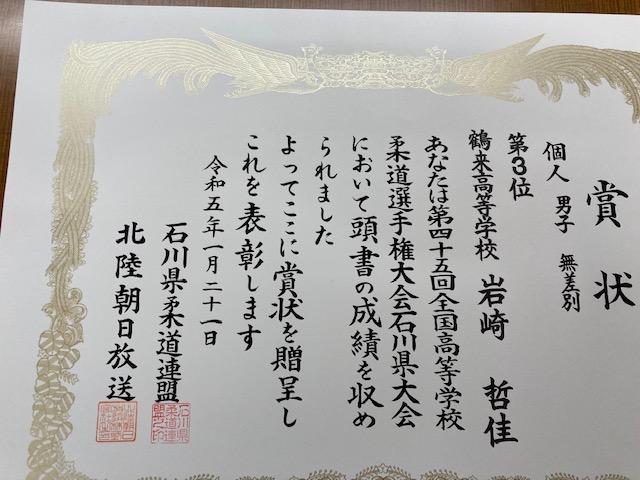 賞状
個人 男子 無差別
第3位
鶴来高等学校 岩崎 哲佳
あなたは第四十五回全国高等学校
柔道選手権大会石川県大会
において頭書の成績を収め
られました
よってここに賞状を贈呈し
これを表彰します
令和五年一月二十一日
石川県柔道連盟
北陸朝日放送
石川県柔道連盟之印